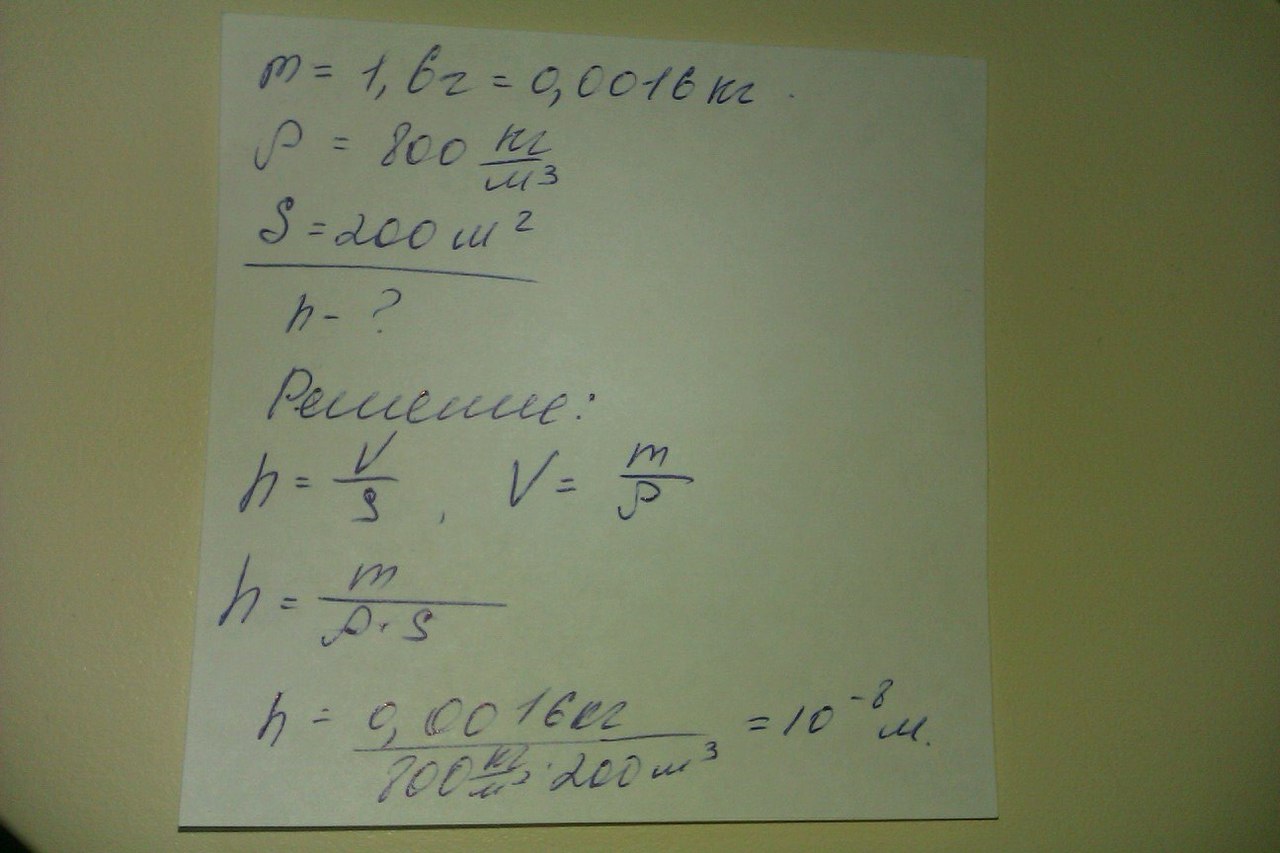 m = 1,6г = 0,0016 кг.
ρ = 800 кг/м³
S = 200 м²
h - ?
Решение:
h = V/S, V = m/ρ
h = m/(ρ · S)
h = 0,0016 кг/(800 кг/м³ · 200 м³) = 10⁻⁸ м.